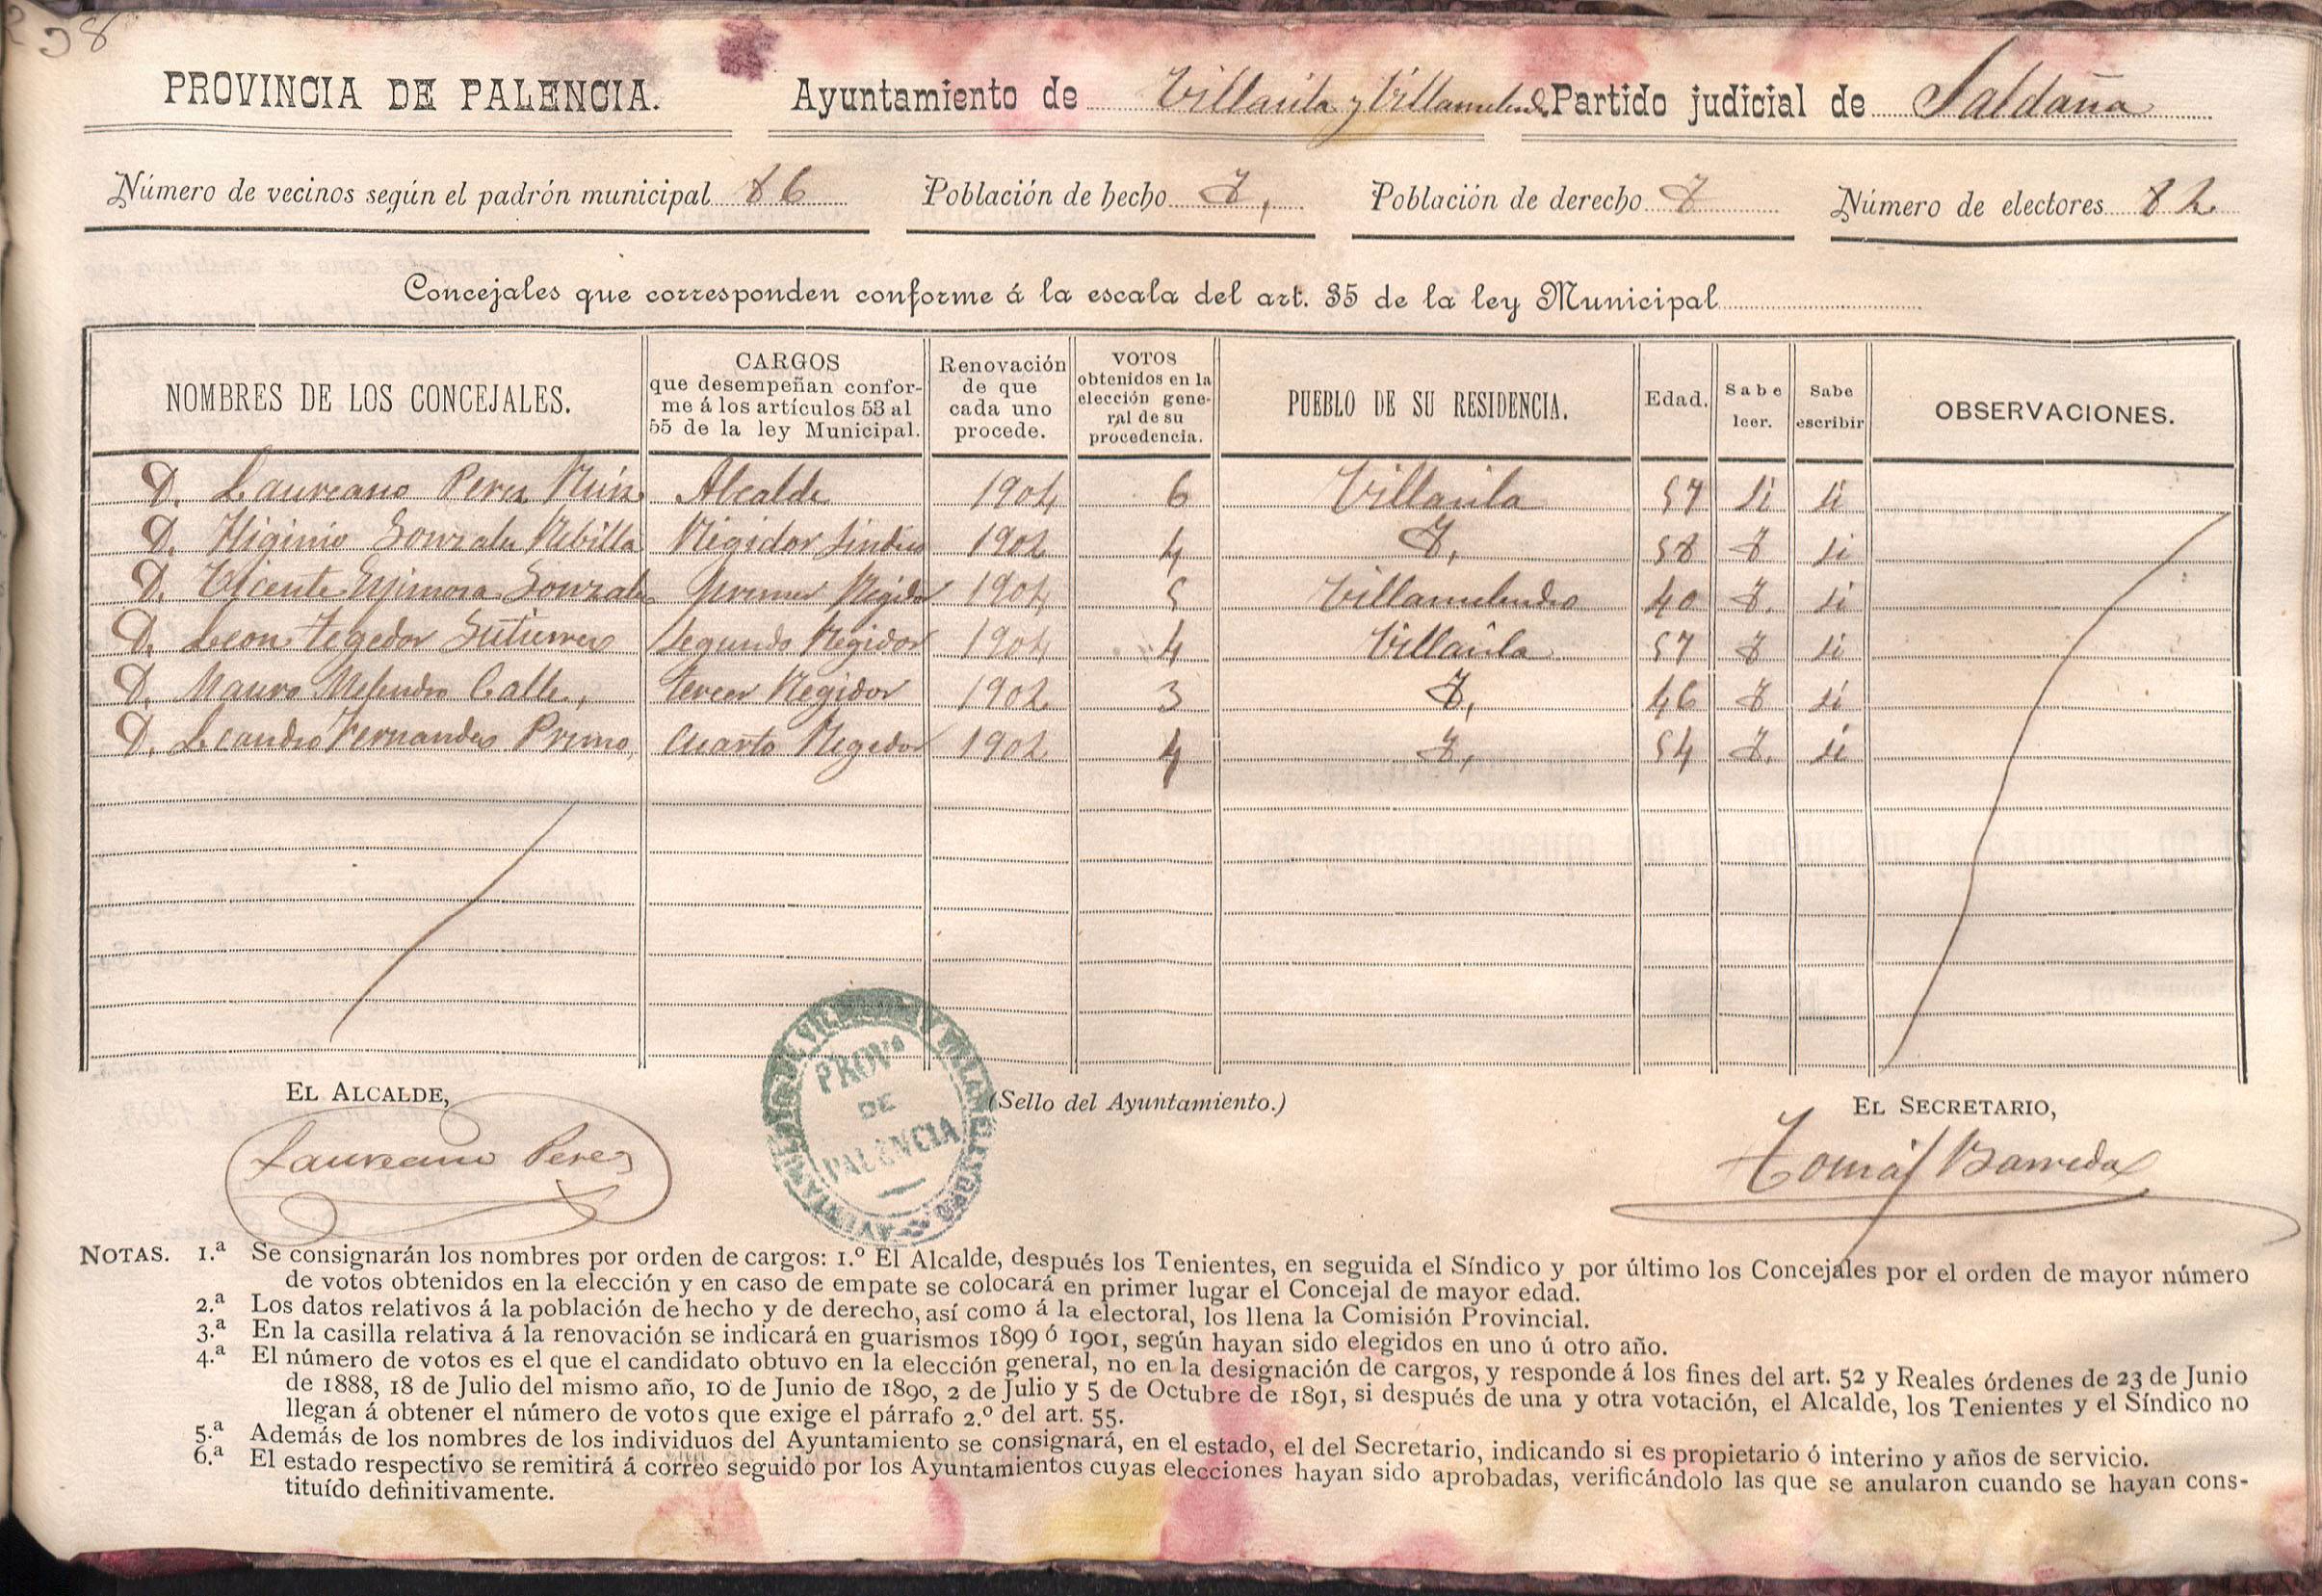 58
PROVINCIA DE PALENCIA. Ayuntamiento de Villaüla y Villamelendro Partido judicial de Saldaña
Número de vecinos según el padrón municipal 86 Población de hecho Población de derecho Número de electores 82
Concejales que corresponden conforme á la escala del art. 35 de la ley Municipal
NOMBRES DE LOS CONCEJALES. CARGOS que desempeñan conforme á los artículos 53 al 55 de la ley Municipal. Renovación de que cada uno procede. VOTOS obtenidos en la elección general de su procedencia. PUEBLO DE SU RESIDENCIA. Edad. Sabe leer. Sabe escribir OBSERVACIONES.
D. Laureano Perez Alcalde 1904 6 Villaüla 57 si si
D. Higinio Gonzalez Rebilla Regidor Sindico 1902 4 58 si
D. Vicente Espinosa Gonzalez primer Regidor 1904 5 Villamelendro 40 si
D. Leon Tegedor Gutierrez Segundo Regidor 1904 4 Villaüla 57 si
D. Mauro Melendro Calle, tercer Regidor 1902 3 46 si
D. Leandro Fernandez Primo, Cuarto Regidor 1902 4 54 si
EL ALCALDE, (Sello del Ayuntamiento.) EL SECRETARIO,
PROV.ª DE PALENCIA
Laureano Perez Tomás Barreda
NOTAS. 1.ª Se consignarán los nombres por orden de cargos: 1.º El Alcalde, después los Tenientes, en seguida el Síndico y por último los Concejales por el orden de mayor número
de votos obtenidos en la elección y en caso de empate se colocará en primer lugar el Concejal de mayor edad.
2.ª Los datos relativos á la población de hecho y de derecho, así como á la electoral, los llena la Comisión Provincial.
3.ª En la casilla relativa á la renovación se indicará en guarismos 1899 ó 1901, según hayan sido elegidos en uno ú otro año.
4.ª El número de votos es el que el candidato obtuvo en la elección general, no en la designación de cargos, y responde á los fines del art. 52 y Reales órdenes de 23 de Junio
de 1888, 18 de Julio del mismo año, 10 de Junio de 1890, 2 de Julio y 5 de Octubre de 1891, si después de una y otra votación, el Alcalde, los Tenientes y el Síndico no
llegan á obtener el número de votos que exige el párrafo 2.º del art. 55.
5.ª Además de los nombres de los individuos del Ayuntamiento se consignará, en el estado, el del Secretario, indicando si es propietario ó interino y años de servicio.
6.ª El estado respectivo se remitirá á correo seguido por los Ayuntamientos cuyas elecciones hayan sido aprobadas, verificándolo las que se anularon cuando se hayan cons-
tituído definitivamente.